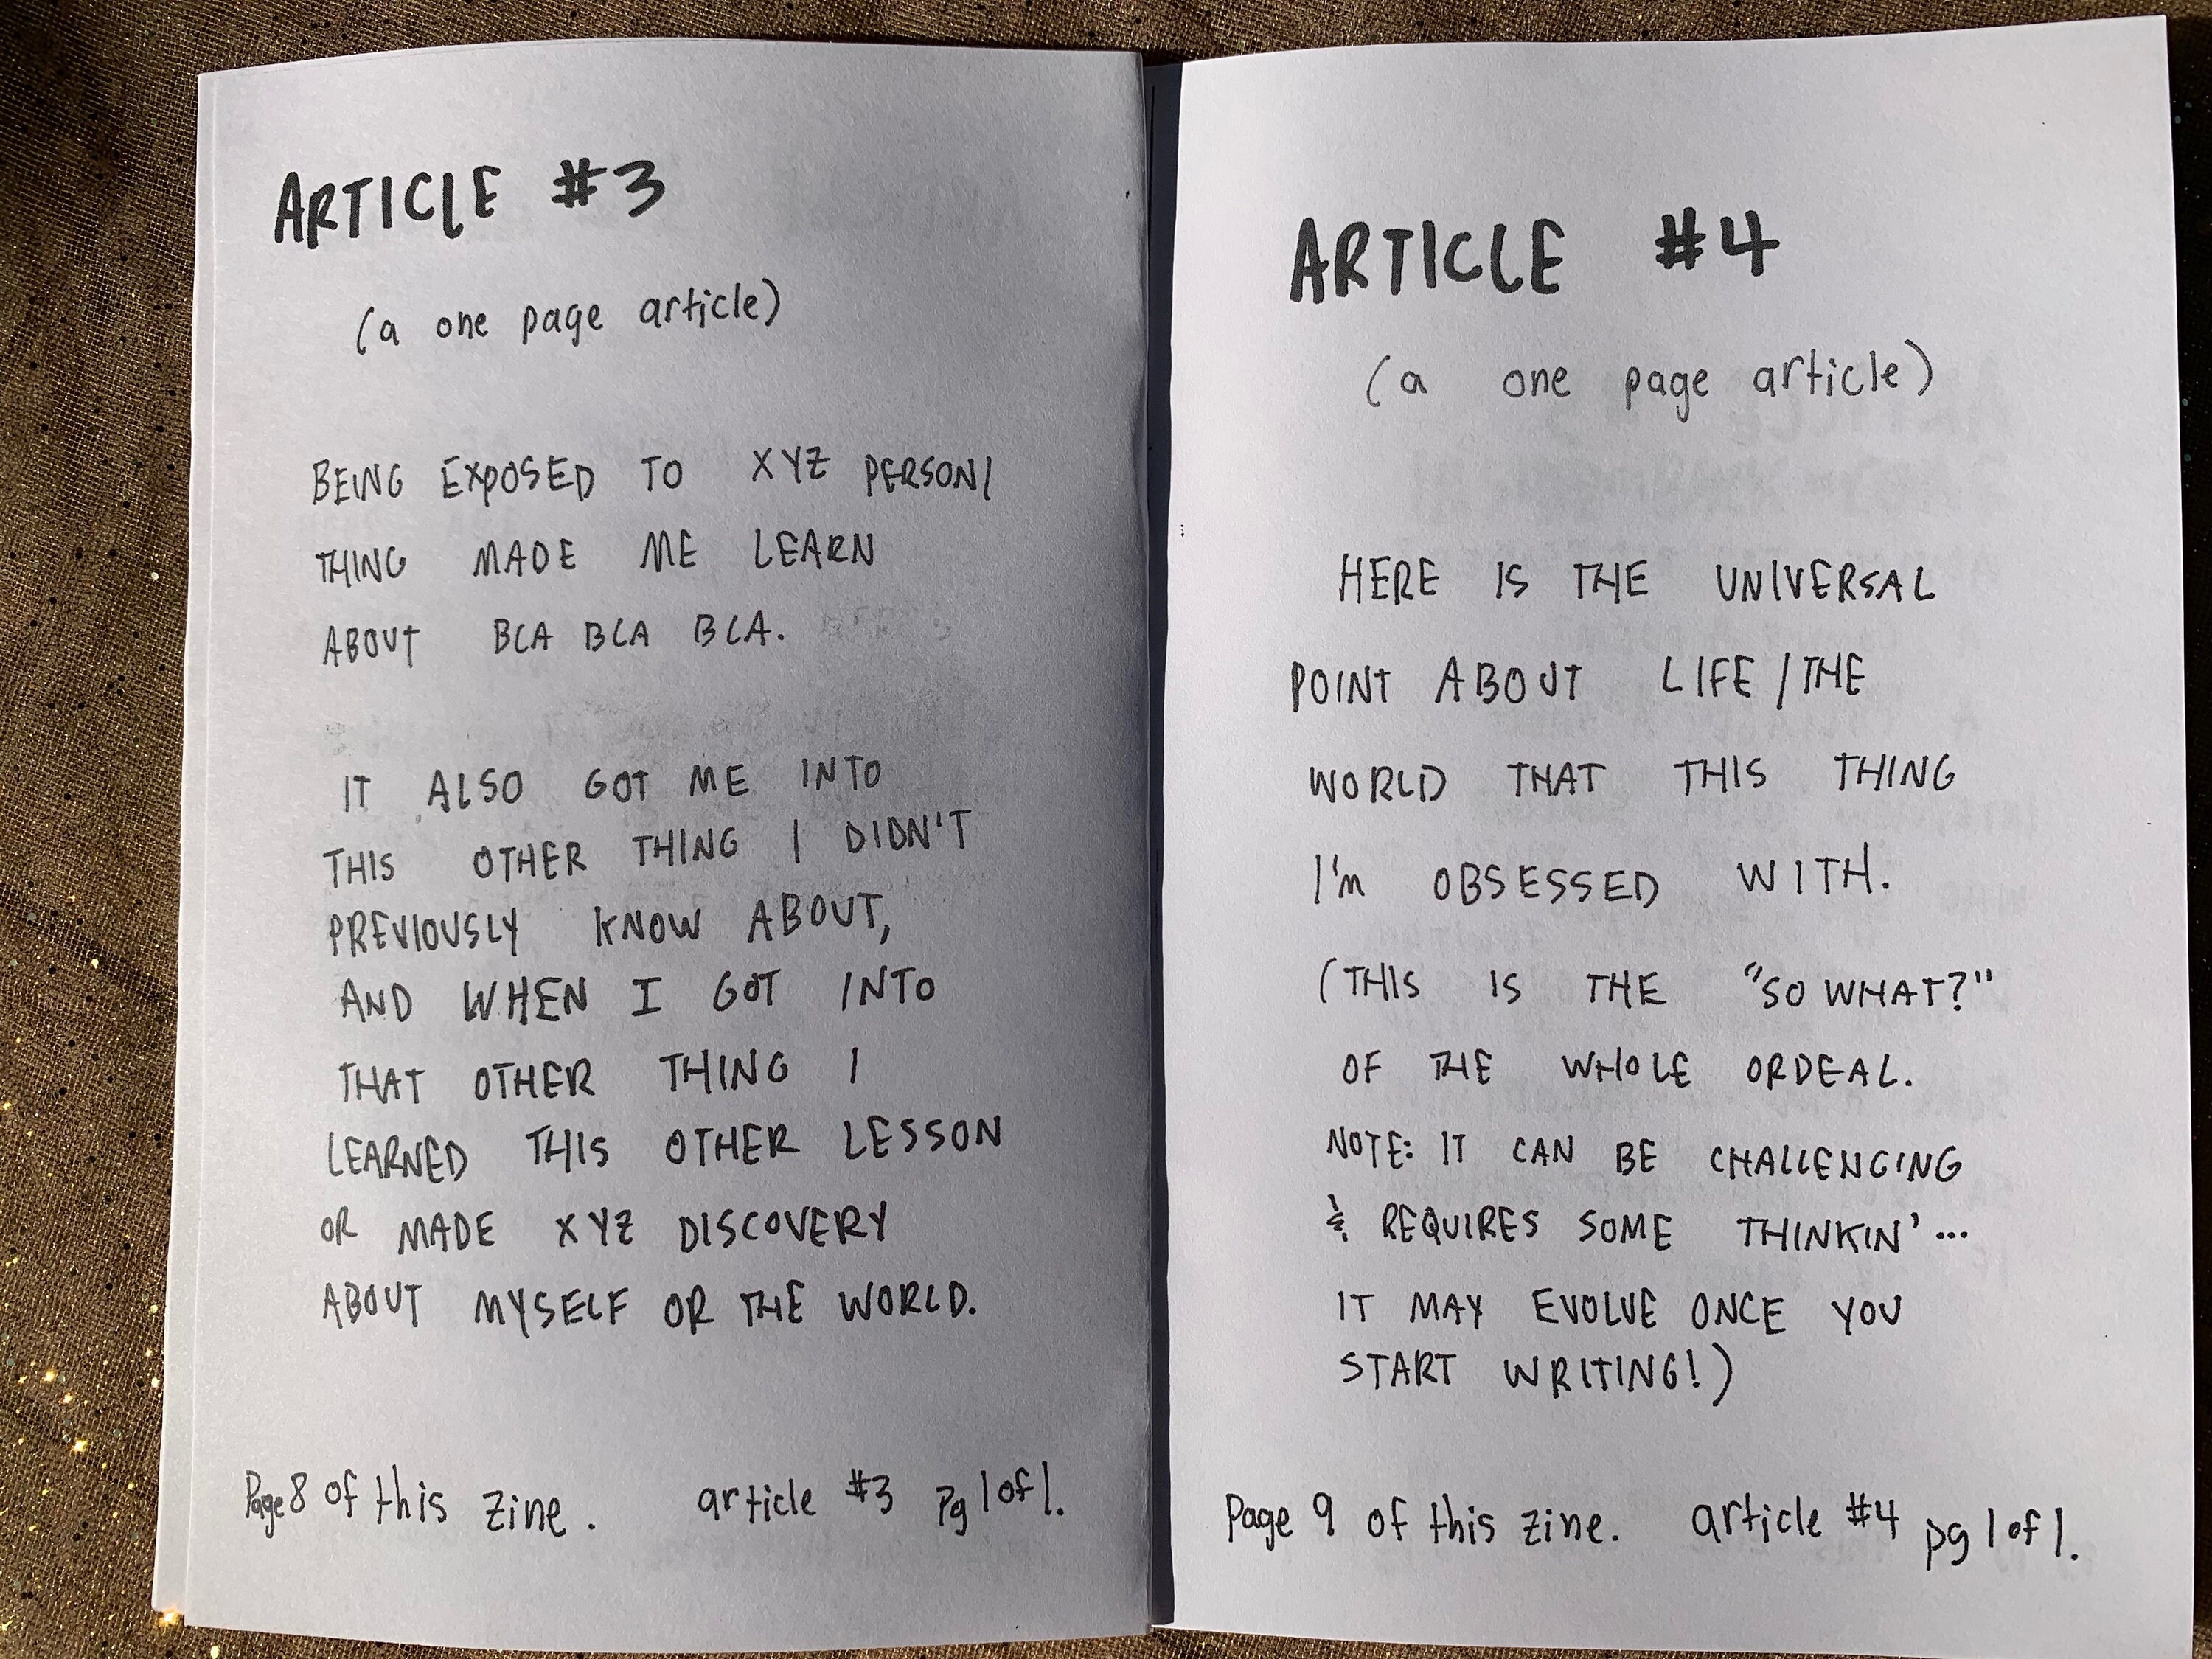 ARTICLE #3
(a one page article)
BEING EXPOSED TO XYZ PERSON/
THING MADE ME LEARN
ABOUT BLA BLA BLA.
IT ALSO GOT ME INTO
THIS OTHER THING I DIDN'T
PREVIOUSLY KNOW ABOUT,
AND WHEN I GOT INTO
THAT OTHER THING I
LEARNED THIS OTHER LESSON
OR MADE XYZ DISCOVERY
ABOUT MYSELF OR THE WORLD.
Page 8 of this zine. article #3 pg 1 of 1.
ARTICLE #4
(a one page article)
HERE IS THE UNIVERSAL
POINT ABOUT LIFE / THE
WORLD THAT THIS THING
I'm OBSESSED WITH.
(THIS IS THE "SO WHAT?"
OF THE WHOLE ORDEAL.
NOTE: IT CAN BE CHALLENGING
& REQUIRES SOME THINKIN'...
IT MAY EVOLVE ONCE YOU
START WRITING!)
Page 9 of this zine. article #4 pg 1 of 1.